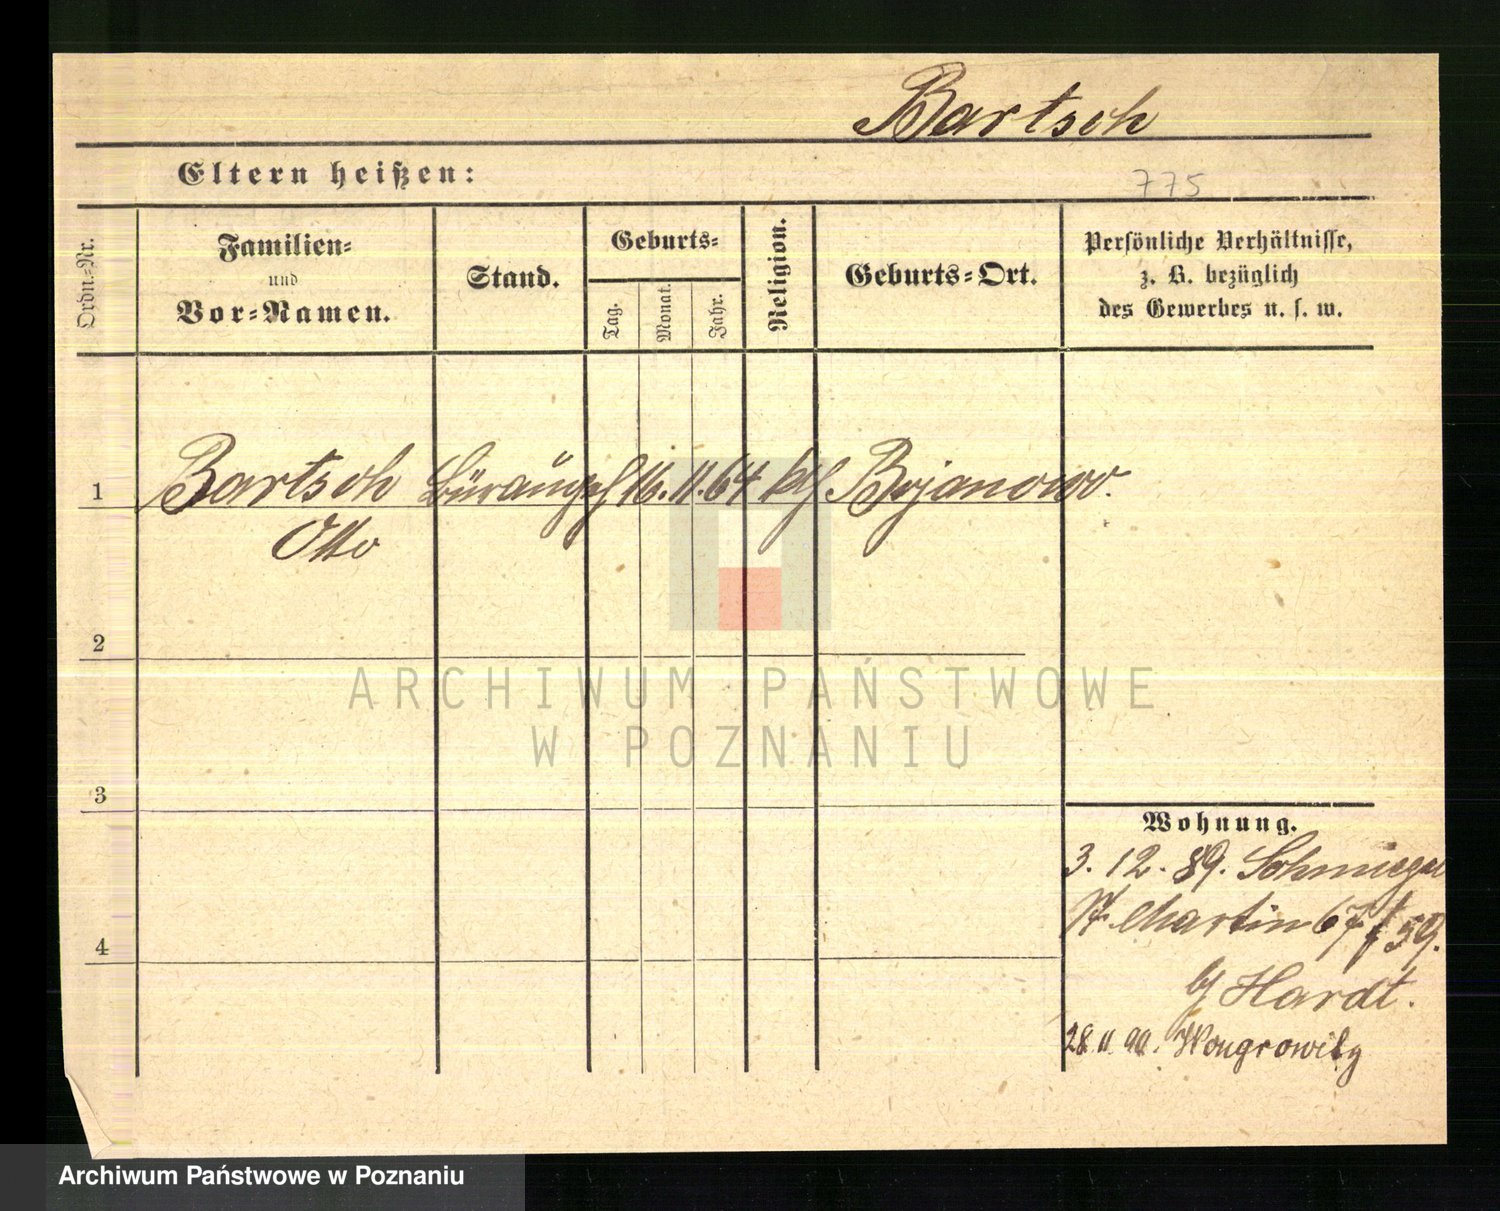 Bartsch
Eltern heißen:
775
Ordn.-Nr.
Familien-
und
Vor-Namen.
Stand.
Geburts-
Tag.
Monat.
Jahr.
Religion.
Geburts-Ort.
Persönliche Verhältnisse,
z. B. bezüglich
des Gewerbes u. s. w.
1 Bartsch 16. 11. 64 kth Bojanowo.
Otto
2
ARCHIWUM PAŃSTWOWE
W POZNANIU
3
Wohnung.
3. 12. 89. Schmiegel
St. Martin 67 59.
b/ Hardt.
4
28. 11. 90. Wongrowitz
Archiwum Państwowe w Poznaniu